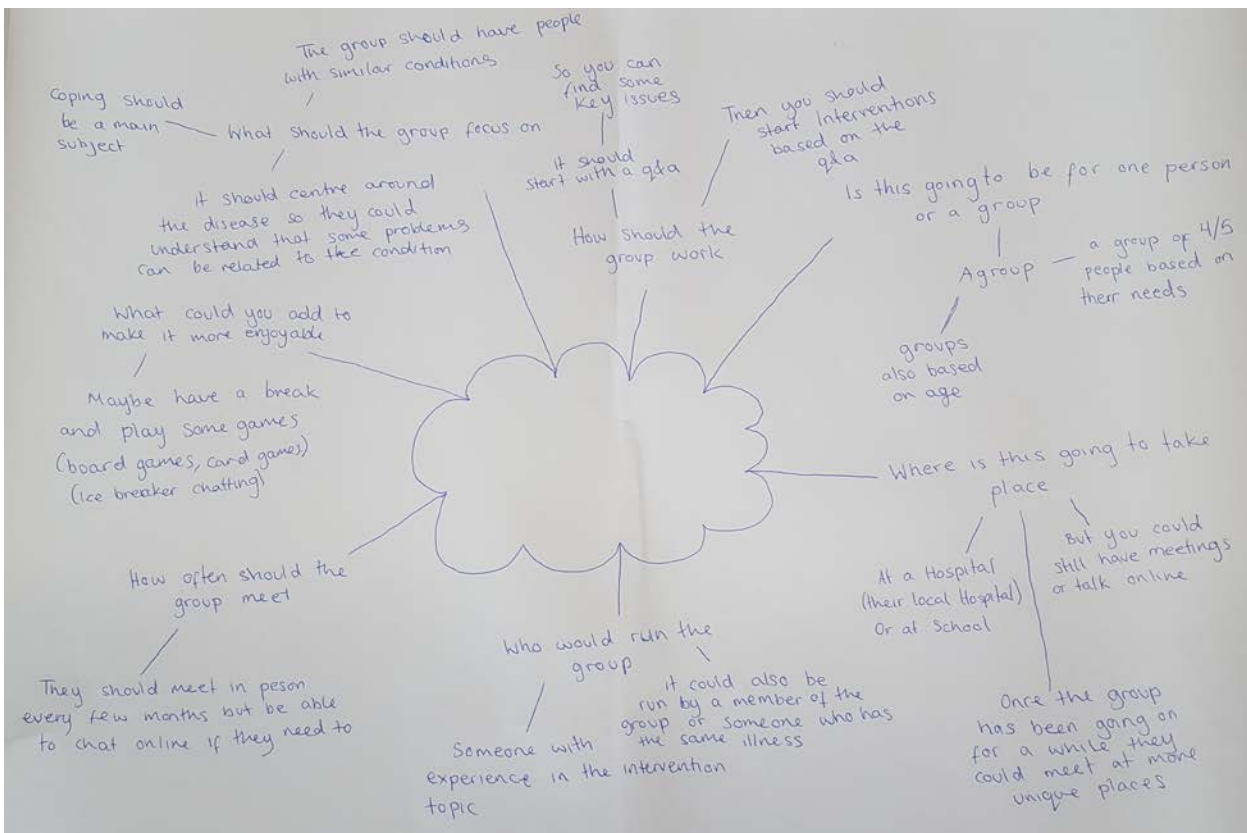 The group should have people
with similar conditions
Coping should
be a main
subject
What should the group focus on
it should centre around
the disease so they could
understand that some problems
can be related to the condition
So you can
find some
key issues
it should
start with a q&a
Then you should
start interventions
based on the
q&a
How should the
group work
Is this going to be for one person
or a group
A group
a group of 4/5
people based on
their needs
groups
also based
on age
What could you add to
make it more enjoyable
Maybe have a break
and play some games
(board games, card games)
(Ice breaker chatting)
Where is this going to take
place
At a Hospital
(their local Hospital)
Or at School
But you could
still have meetings
or talk online
Once the group
has been going on
for a while they
could meet at more
unique places
How often should the
group meet
They should meet in peson
every few months but be able
to chat online if they need to
Who would run the
group
Someone with
experience in the intervention
topic
it could also be
run by a member of the
group or someone who has
the same illness